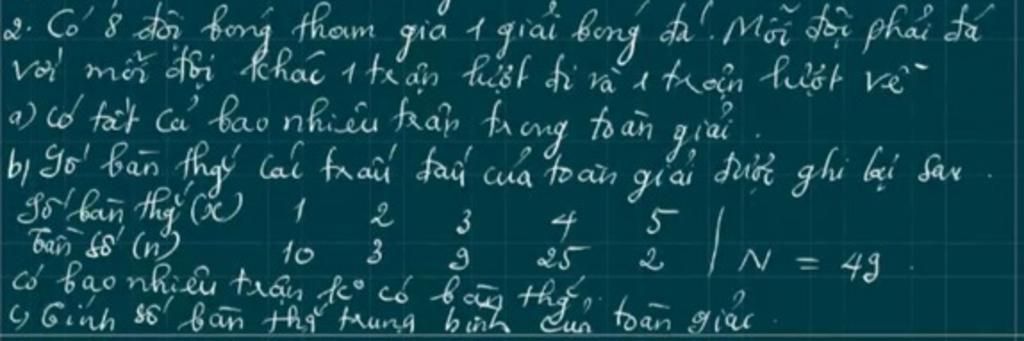 2. Có 8 đội bóng tham gia 1 giải bóng đá. Mỗi đội phải đá
với mỗi đội khác 1 trận lượt đi và 1 trận lượt về
a) có tất cả bao nhiêu trận trong toàn giải.
b) Số bàn thắng các trận đấu của toàn giải được ghi lại sau.
Số bàn thg (x) 1 2 3 4 5
Tần số (n) 10 3 9 25 2 N = 49.
có bao nhiêu trận ko có bàn thg.
c) Tính số bàn thg trung bình của toàn giải.